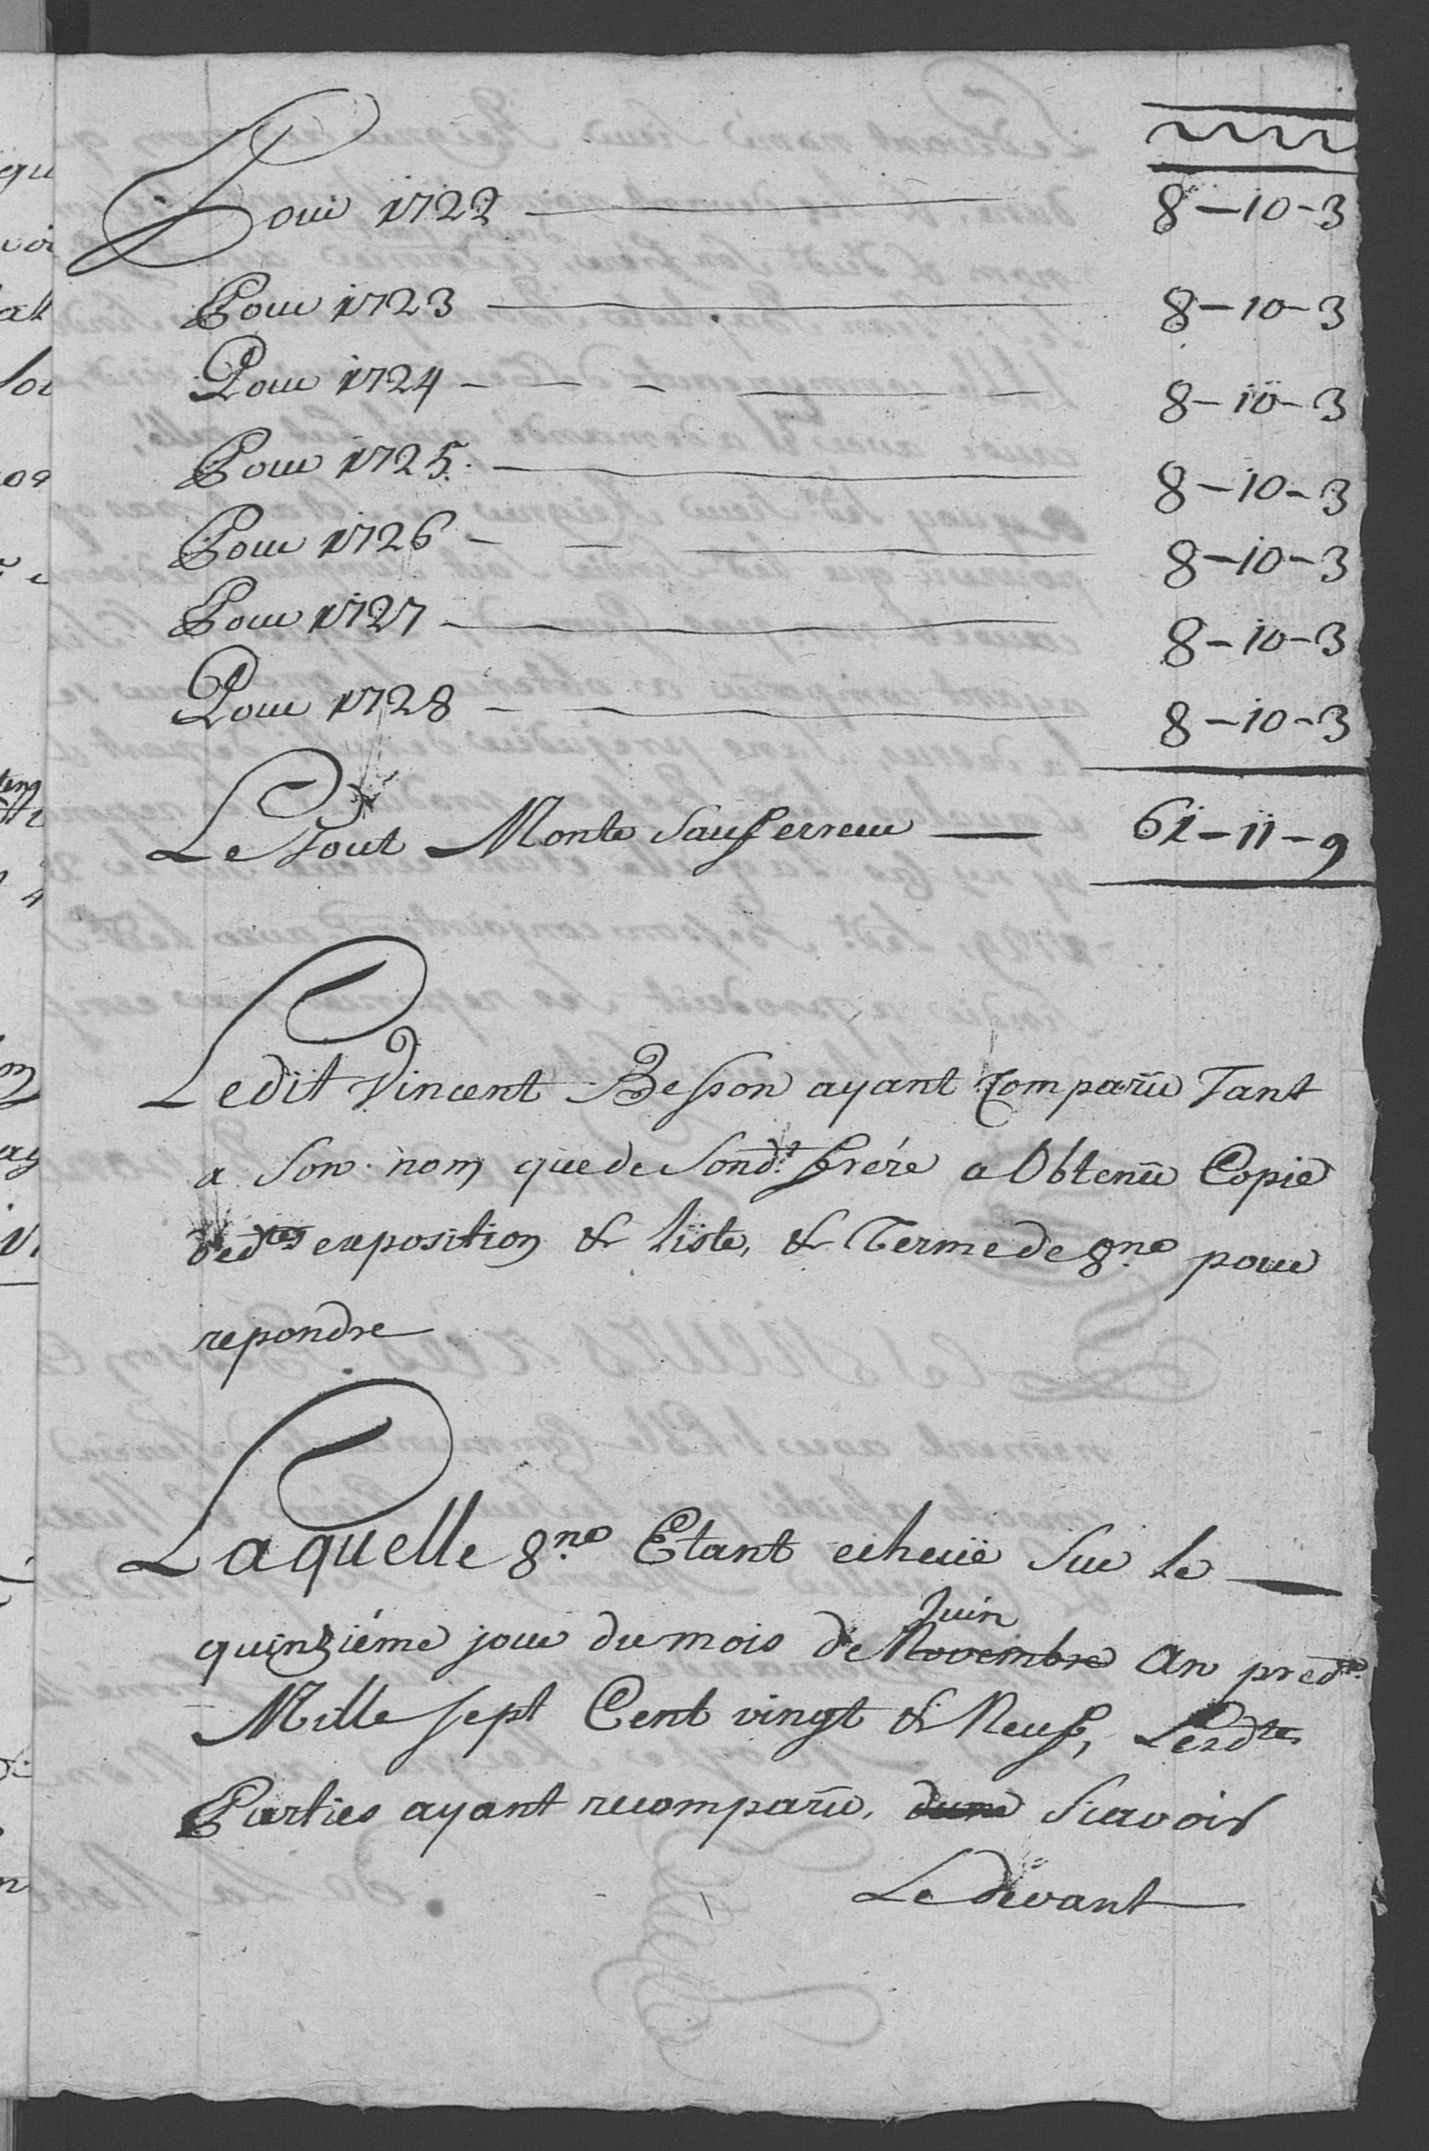 Pour 1722 — 8-10-3
Pour 1723 — 8-10-3
Pour 1724 — 8-10-3
Pour 1725. — 8-10-3
Pour 1726 — 8-10-3
Pour 1727 — 8-10-3
Pour 1728 — 8-10-3
Le Tout Monte Sauf erreur — 61-11-9
Ledit Vincent Besson ayant Comparu Tant
a Son nom que de Sondt frére a Obtenu Copie
desdtes exposition & liste, & Terme de 8ne pour
repondre
Laquelle 8ne Etant echeüe Sur le
Juin
quinziéme jour du mois de Novembre an predt
Mille sept Cent vingt & Neuf, Lesdtes
Parties ayant recomparu, Scavoir
Le devant